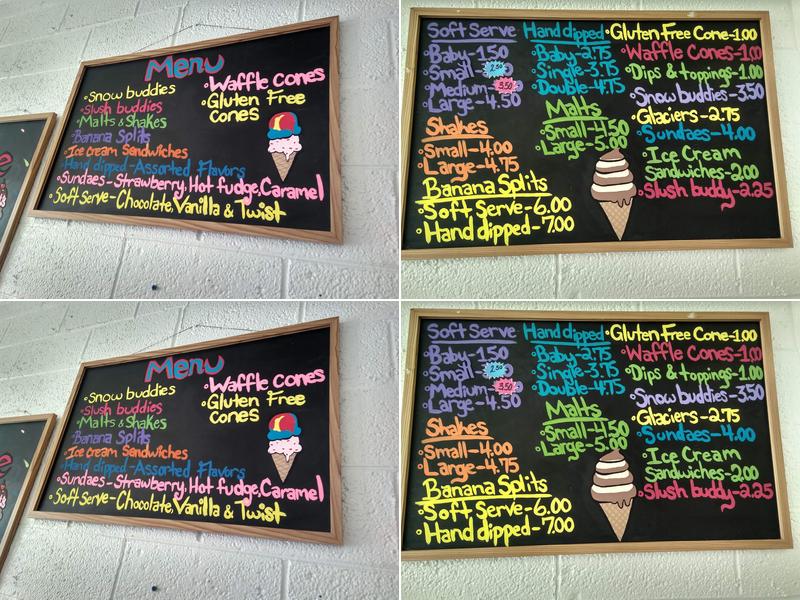 Menu
Snow buddies
Slush buddies
Malts & Shakes
Banana Splits
Ice cream Sandwiches
Hand dipped-Assorted Flavors
Sundaes-Strawberry, Hot fudge, Caramel
Soft Serve-Chocolate, Vanilla & Twist
Waffle cones
Gluten Free
cones
Soft Serve
Baby-1.50
Small 2.50
Medium 3.50
Large-4.50
Shakes
Small-4.00
Large-4.75
Banana Splits
Soft Serve-6.00
Hand dipped-7.00
Hand dipped
Baby-2.75
Single-3.75
Double-4.75
Malts
Small-4.50
Large-5.00
Gluten Free Cone-1.00
Waffle Cones-1.00
Dips & toppings-1.00
Snow buddies-3.50
Glaciers-2.75
Sundaes-4.00
Ice Cream
Sandwiches-2.00
Slush buddy-2.25
Menu
Snow buddies
Slush buddies
Malts & Shakes
Banana Splits
Ice cream Sandwiches
Hand dipped-Assorted Flavors
Sundaes-Strawberry, Hot fudge, Caramel
Soft Serve-Chocolate, Vanilla & Twist
Waffle cones
Gluten Free
cones
Soft Serve
Baby-1.50
Small 2.50
Medium 3.50
Large-4.50
Shakes
Small-4.00
Large-4.75
Banana Splits
Soft Serve-6.00
Hand dipped-7.00
Hand dipped
Baby-2.75
Single-3.75
Double-4.75
Malts
Small-4.50
Large-5.00
Gluten Free Cone-1.00
Waffle Cones-1.00
Dips & toppings-1.00
Snow buddies-3.50
Glaciers-2.75
Sundaes-4.00
Ice Cream
Sandwiches-2.00
Slush buddy-2.25